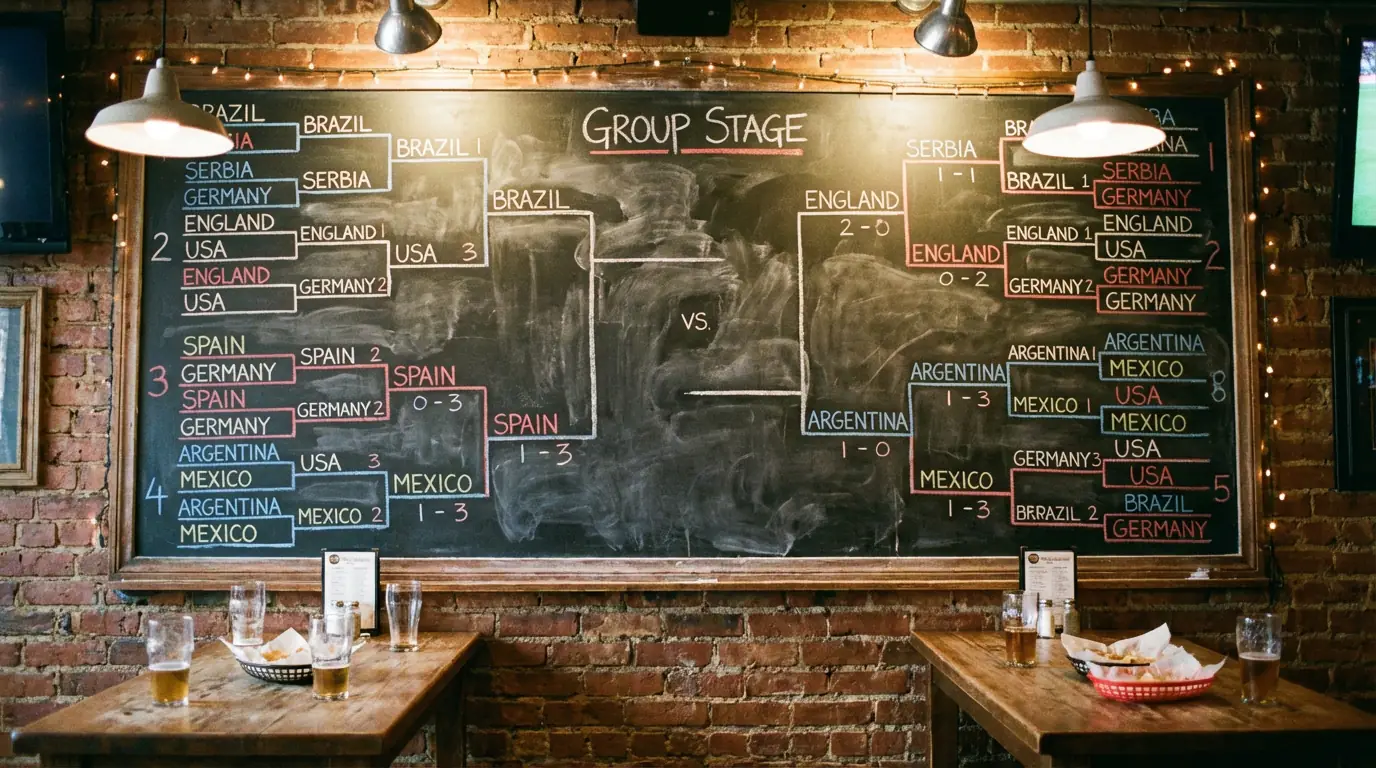 GROUP STAGE
BRAZIL
SERBIA
GERMANY
2
ENGLAND
USA
ENGLAND
USA
3
SPAIN
GERMANY
SPAIN
GERMANY
4
ARGENTINA
MEXICO
ARGENTINA
MEXICO
BRAZIL
SERBIA
ENGLAND 1
GERMANY 2
SPAIN 2
GERMANY 2
USA 3
MEXICO 2
BRAZIL 1
USA 3
SPAIN
0-3
MEXICO
1-3
BRAZIL
SPAIN
1-3
VS.
ENGLAND
2-0
ARGENTINA
1-0
SERBIA
1-1
ENGLAND
0-2
ARGENTINA
1-3
MEXICO
1-3
BRAZIL 1
ENGLAND 1
GERMANY 2
ARGENTINA 1
MEXICO 1
GERMANY 3
BRERAZIL 2
1
SERBIA
GERMANY
2
ENGLAND
USA
GERMANY
GERMANY
8
ARGENTINA
MEXICO
USA
MEXICO
5
USA
USA
BRAZIL
GERMANY